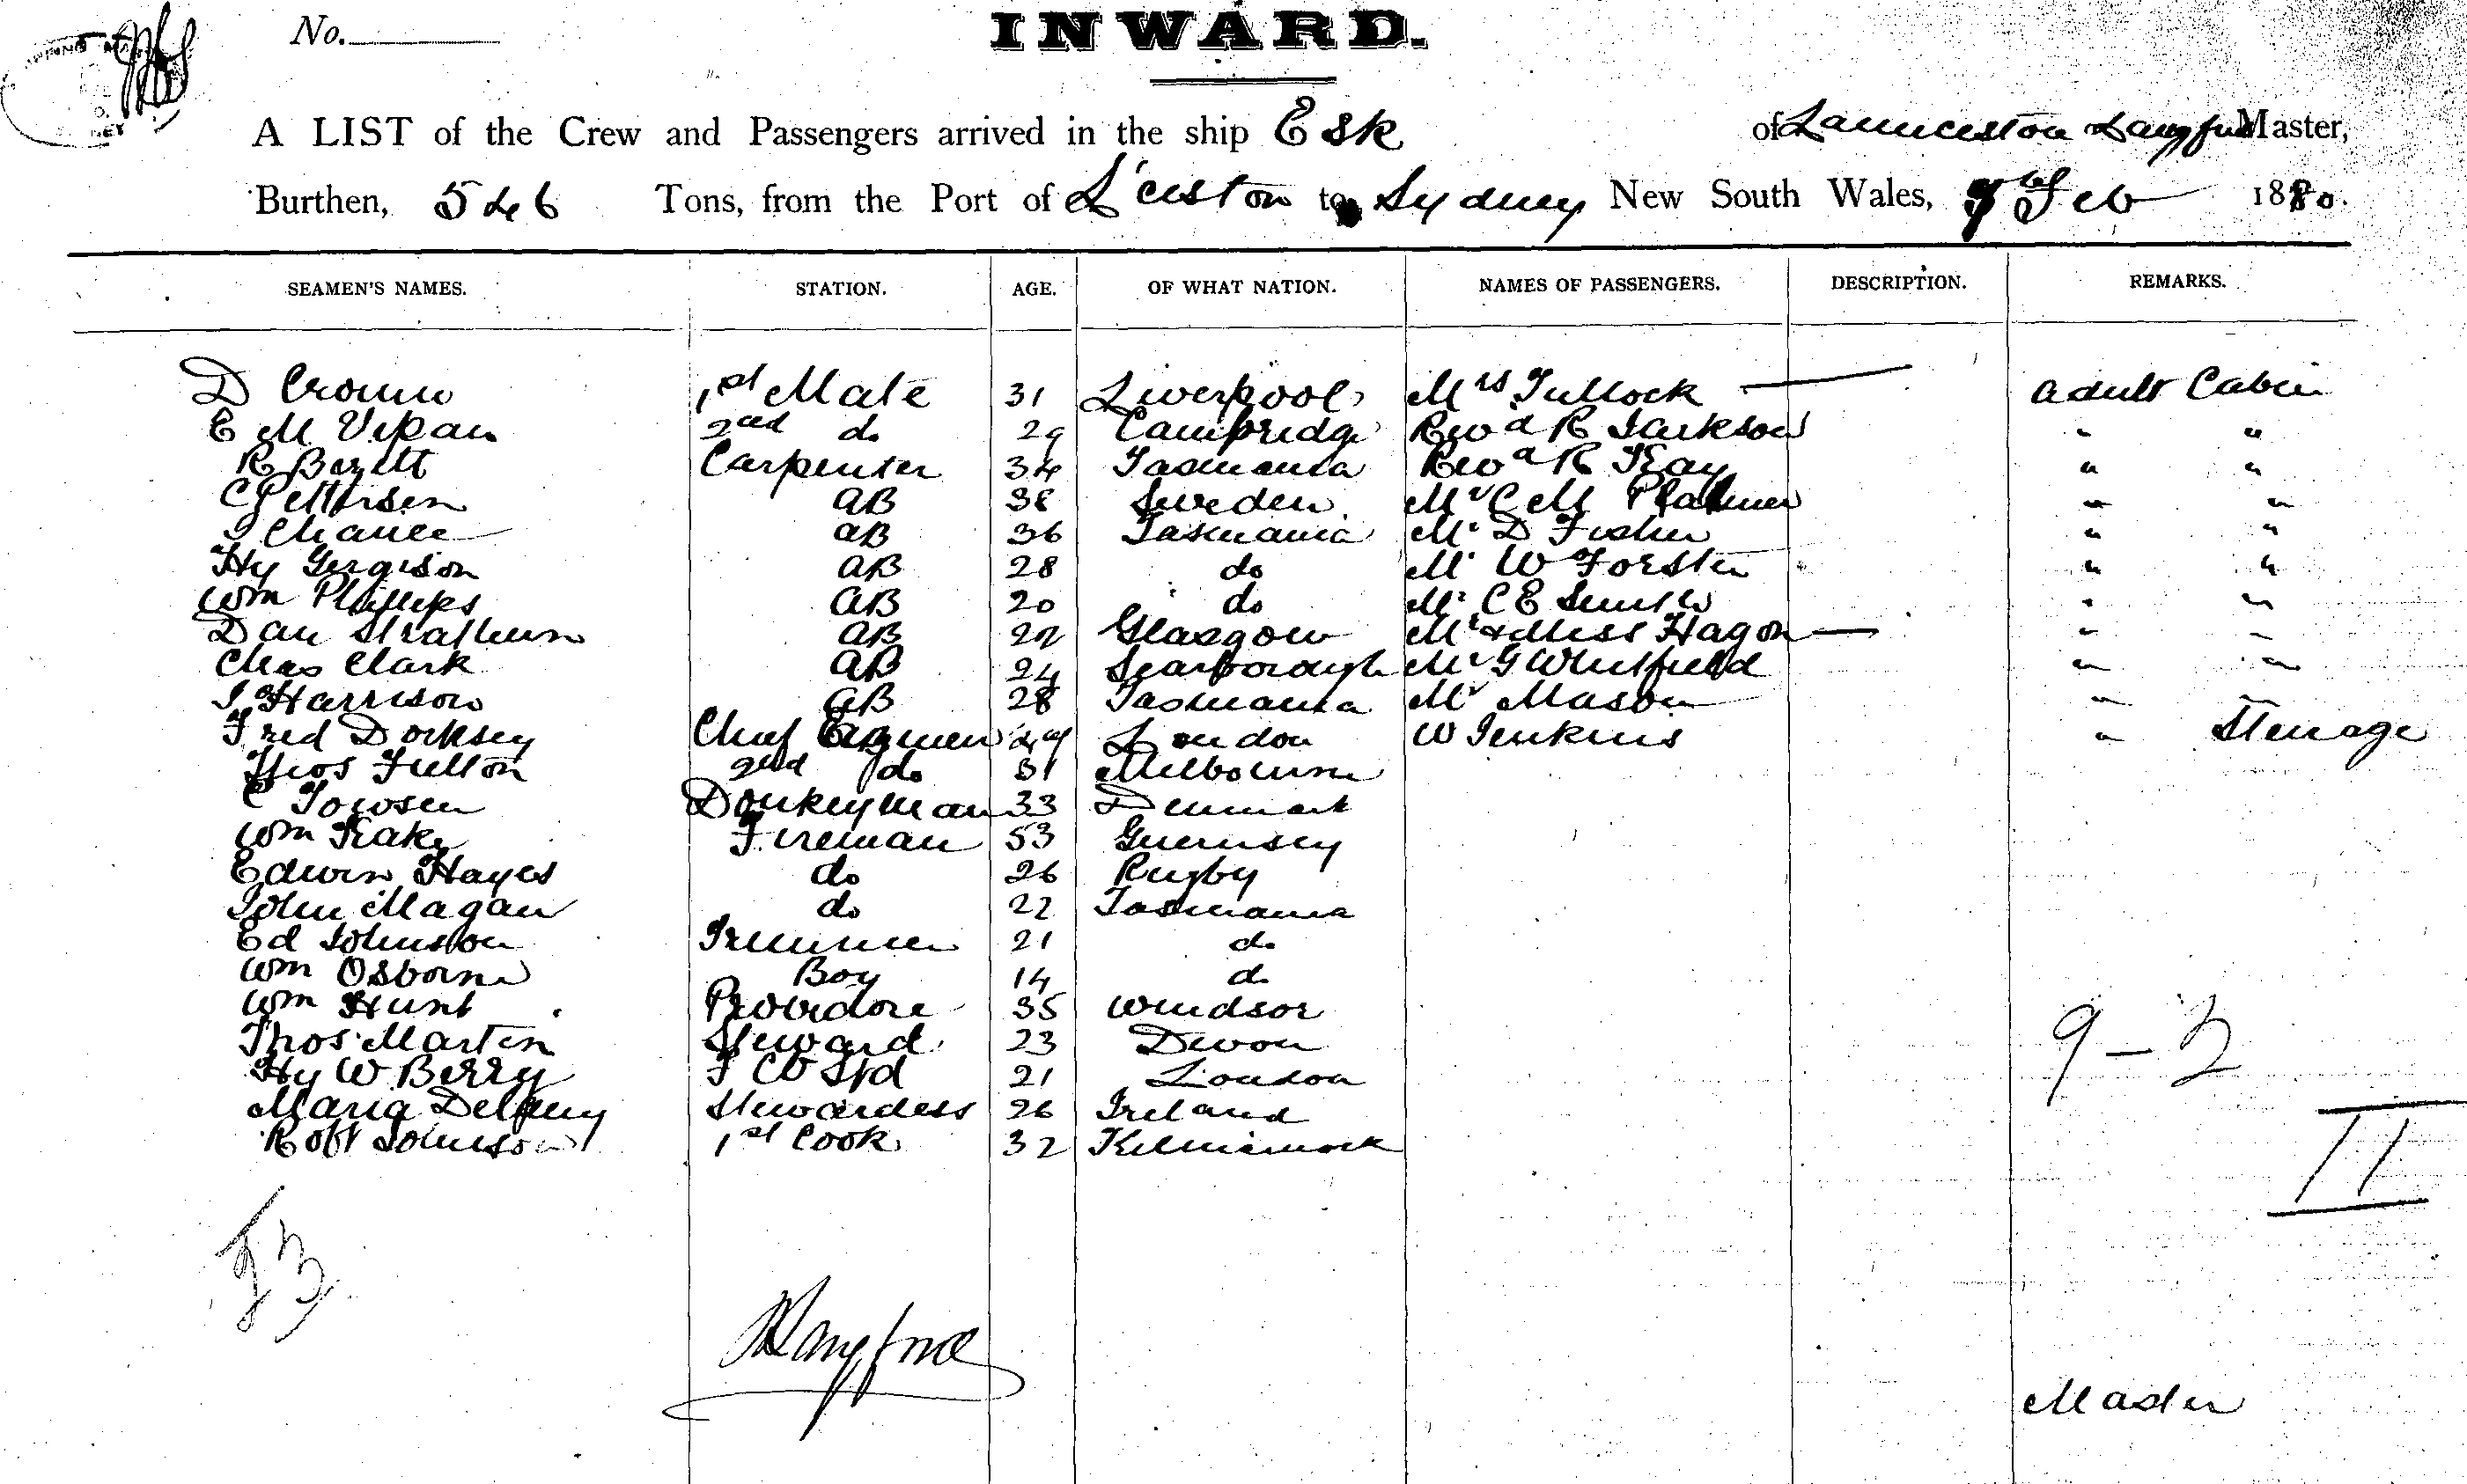 No.
INWARD.
A LIST of the Crew and Passengers arrived in the ship Esk of Launceston Master,
Burthen, 546 Tons, from the Port of L'ceston to Sydney New South Wales, Feb 1880.
SEAMEN'S NAMES. STATION. AGE. OF WHAT NATION. NAMES OF PASSENGERS. DESCRIPTION. REMARKS.
D 1st Mate 31 Liverpool Mrs Tullock adult Cabin
E M 2nd do 29 Cambridge Revd R Jackson " "
R Carpenter 34 Tasmania Revd R Kay " "
C Pettersen AB 38 Sweden Mr C M " "
J Chance AB 36 Tasmania Mr D Fisher " "
Hy Gergison AB 28 do Mr W Forster " "
Wm Phillips AB 20 do Mr C E Smith " "
Dan Strathern AB 22 Glasgow Mr & Miss Hagon " "
Chas Clark AB 24 Scarborough Mr G Whitfield " "
J Harrison AB 28 Tasmania Mr Mason " "
Fred Dorksey Chief 49 London W Jenkins " Steerage
Thos Fulton 2nd do 31 Melbourne
C Towsen Donkeyman 33 Denmark
Wm Fireman 53 Guernsey
Edwin Hayes do 26 Rugby
John Magan do 22 Tasmania
Ed Johnston Trimmer 21 do
Wm Osborne Boy 14 do
Wm Hunt Providore 35 Windsor
Thos Martin Steward 23 Devon
Hy W Berry F C Std 21 London
Maria Delaney Stewardess 26 Ireland
Robt Johnson 1st Cook 32 Kilmarnock
9-2
11
23
Master